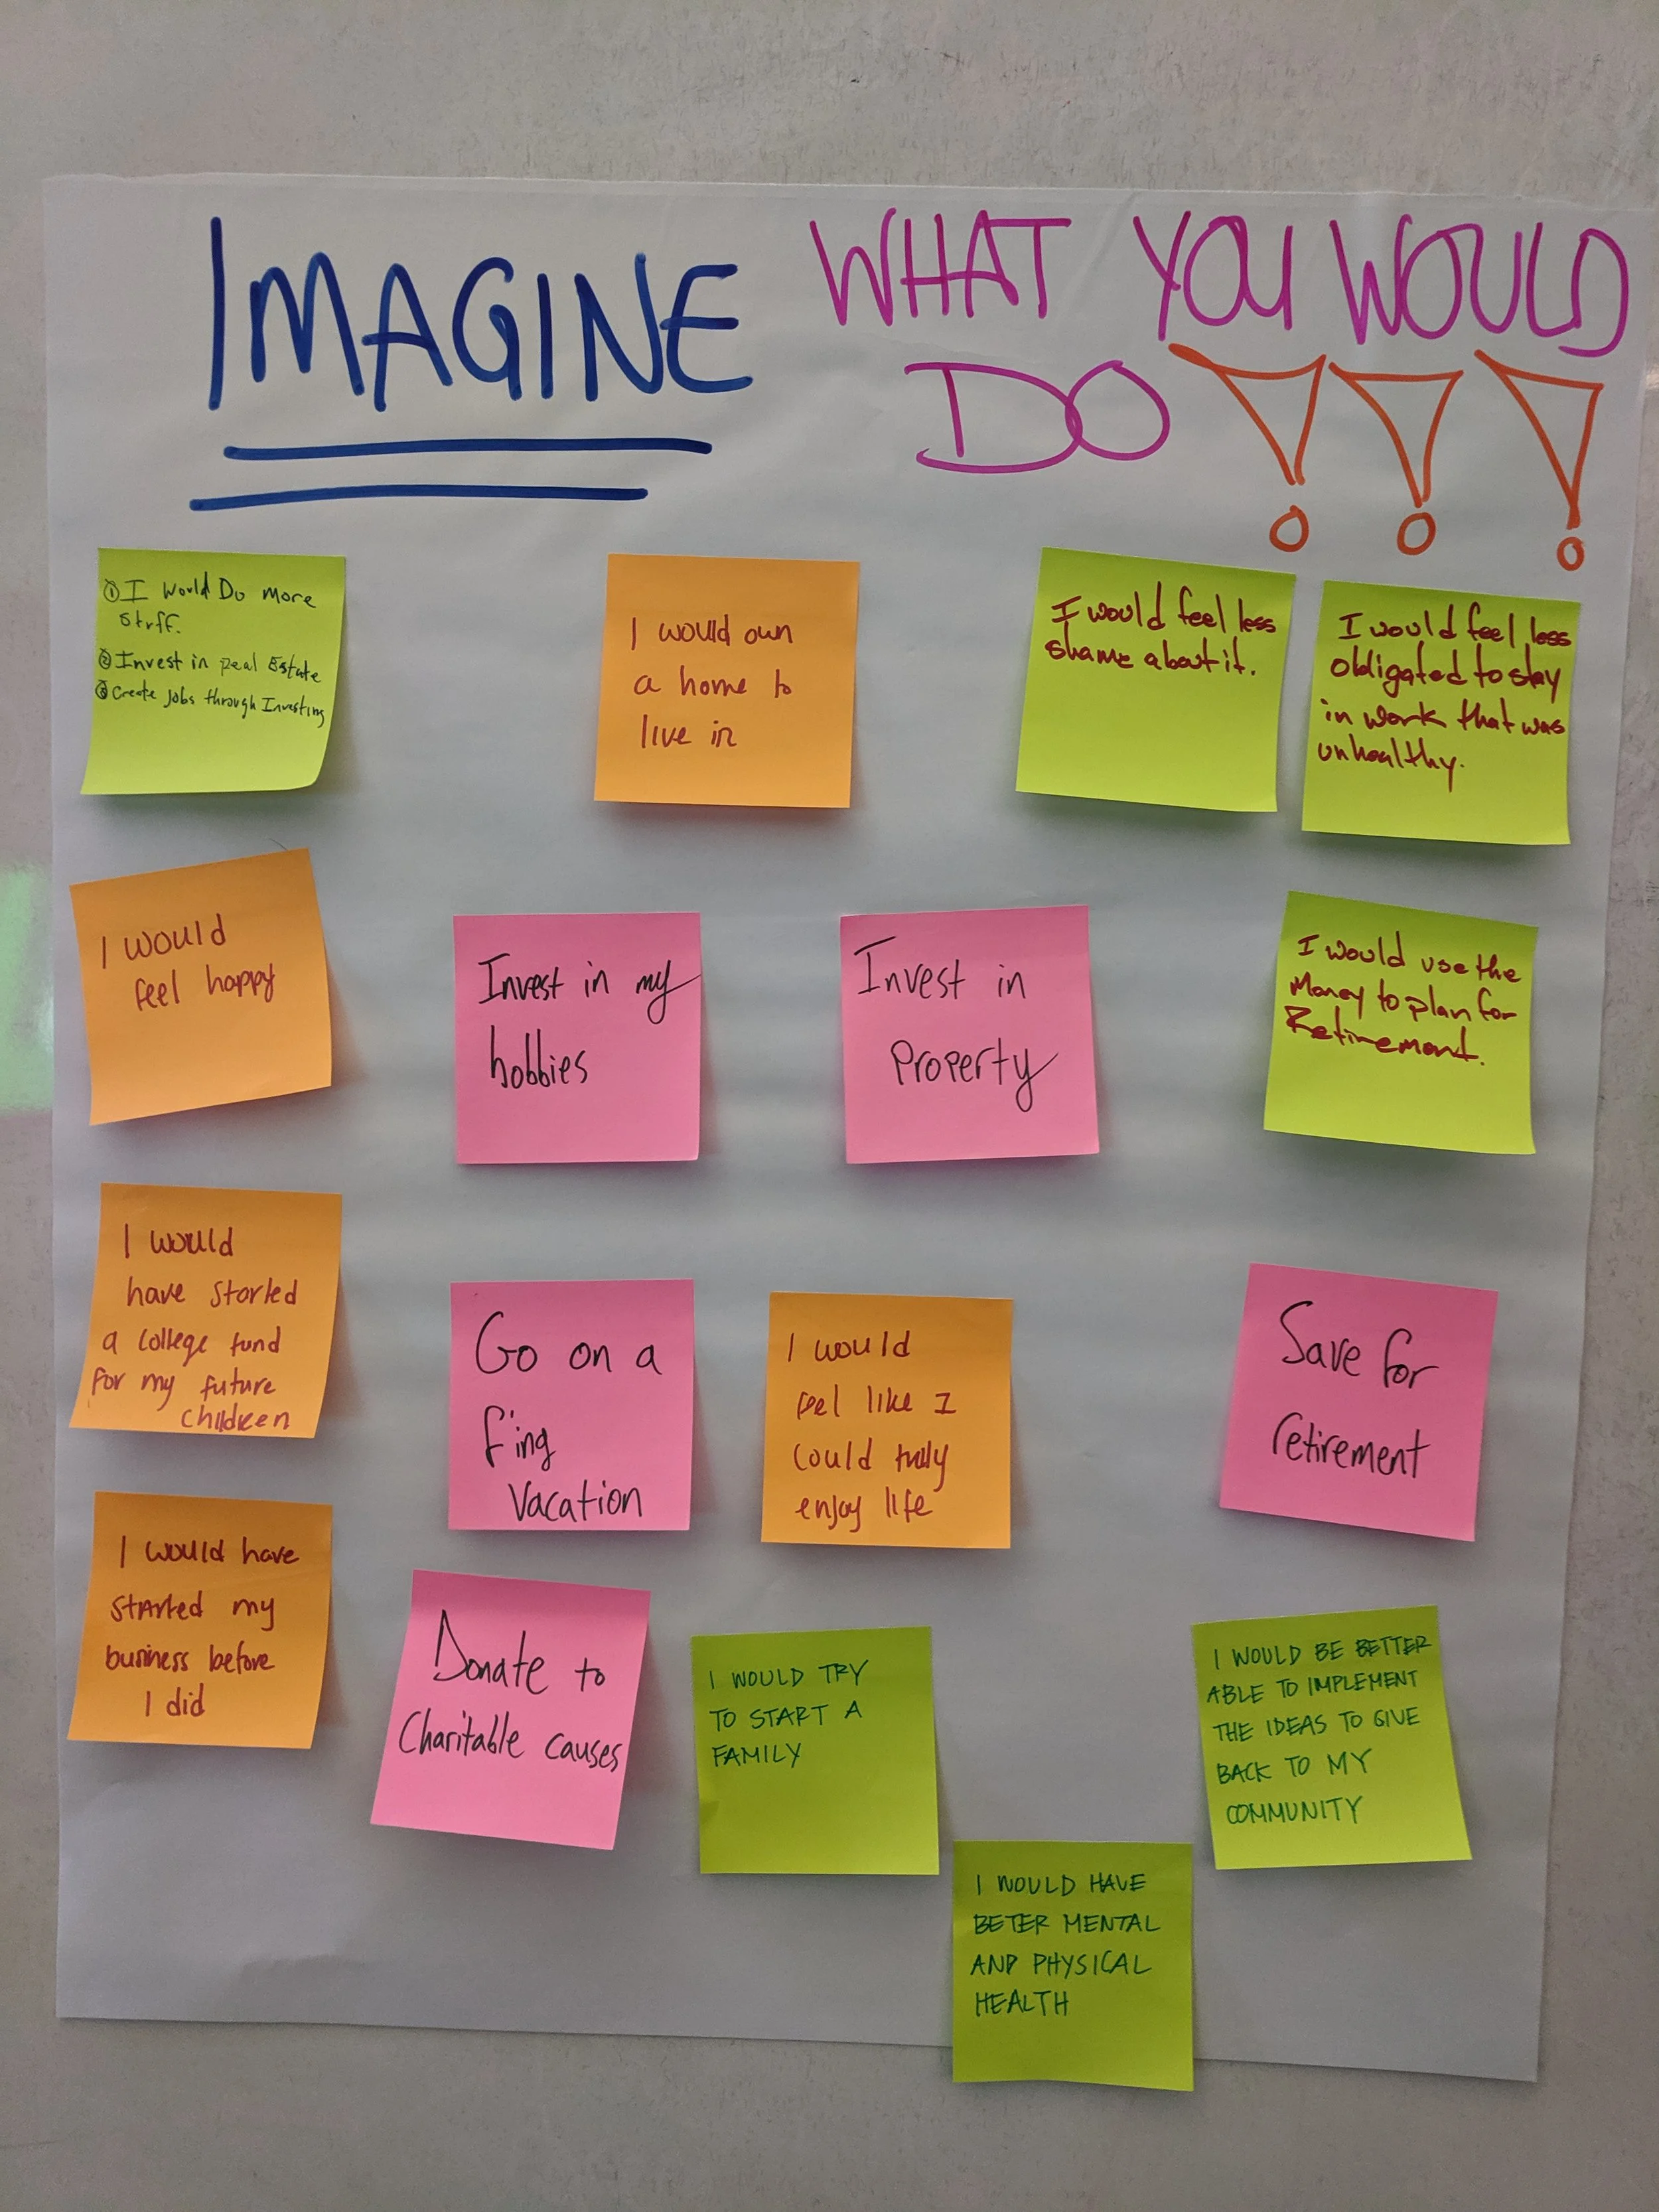 IMAGINE
WHAT YOU WOULD
DO !!!
① I Would Do More
Stuff.
② Invest in Real Estate
③ Create Jobs through Investing
I would own
a home to
live in
I would feel less
shame about it.
I would feel less
obligated to stay
in work that was
unhealthy.
I would
feel happy
Invest in my
hobbies
Invest in
Property
I would use the
Money to plan for
Retirement.
I would
have started
a college fund
for my future
children
Go on a
f'ing
Vacation
I would
feel like I
could fully
enjoy life
Save for
retirement
I would have
started my
business before
I did
Donate to
Charitable causes
I WOULD TRY
TO START A
FAMILY
I WOULD BE BETTER
ABLE TO IMPLEMENT
THE IDEAS TO GIVE
BACK TO MY
COMMUNITY
I WOULD HAVE
BETER MENTAL
AND PHYSICAL
HEALTH